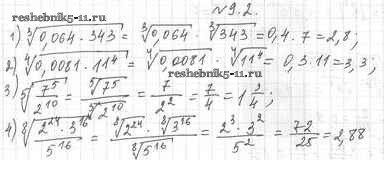 reshebnik5-11.ru
№9.2.
1) ∛(0,064 · 343) = ∛0,064 · ∛343 = 0,4 · 7 = 2,8;
2) ∜(0,0081 · 11⁴) = ∜0,0081 · ∜11⁴ = 0,3 · 11 = 3,3;
reshebnik5-11.ru
3) ⁵√(7⁵/2¹⁰) = ⁵√7⁵/⁵√2¹⁰ = 7/2² = 7/4 = 1 3/4;
4) ⁸√(2²⁴ · 3¹⁶/5¹⁶) = ⁸√2²⁴ · ⁸√3¹⁶/⁸√5¹⁶ = 2³ · 3²/5² = 72/25 = 2,88